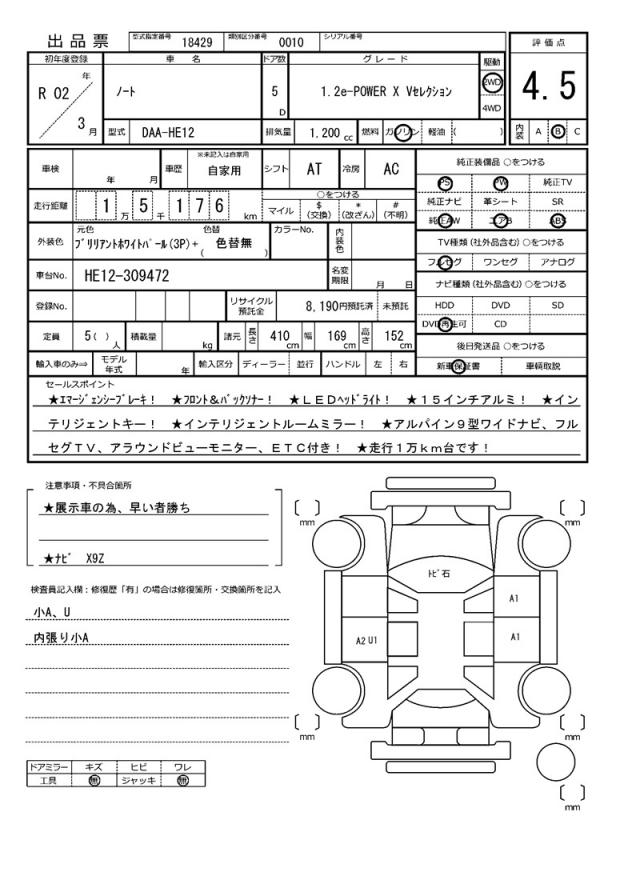 出品票 型式指定番号 18429 類別区分番号 0010 シリアル番号
評価点
4.5
内装 A B C
初年度登録 車名 ドア数 グレード 駆動
R 02 年 3 月 ノート 5 D 1.2e-POWER X Vセレクション 2WD 4WD
型式 DAA-HE12 排気量 1.200 cc 燃料 ガソリン 軽油 ( )
車検 年 月 車歴 ※未記入は自家用 自家用 シフト AT 冷房 AC
走行距離 1 万 5 千 1 7 6 km ○をつける
マイル $ (交換) * (改ざん) # (不明)
外装色 元色 色替 カラーNo. 内装色
ブリリアントホワイトパール(3P)+ ( 色替無 )
車台No. HE12-309472 名変期限 月 日
登録No. リサイクル預託金 8,190円預託済 未預託
定員 5( ) 人 積載量 kg 諸元 長さ 410 cm 幅 169 cm 高さ 152 cm
輸入車のみ⇒ モデル年式 年 輸入区分 ディーラー 並行 ハンドル 左 右
純正装備品 ○をつける
PS PW 純正TV
純正ナビ 革シート SR
純正AW エアB ABS
TV種類(社外品含む)○をつける
フルセグ ワンセグ アナログ
ナビ種類(社外品含む)○をつける
HDD DVD SD
DVD再生可 CD
後日発送品 ○をつける
新車保証書 車輌取説
セールスポイント
★エマージェンシーブレーキ! ★フロント&バックソナー! ★LEDヘッドライト! ★15インチアルミ! ★イン
テリジェントキー! ★インテリジェントルームミラー! ★アルパイン9型ワイドナビ、フル
セグTV、アラウンドビューモニター、ETC付き! ★走行1万km台です!
注意事項・不具合箇所
★展示車の為、早い者勝ち
★ナビ X9Z
検査員記入欄:修復歴「有」の場合は修復箇所・交換箇所を記入
小A、U
内張り小A
ドアミラー キズ ヒビ ワレ
工具 無 ジャッキ 無
[ ] mm
[ ] mm
トビ石
A1
A2 U1
A1
[ ] mm
[ ] mm
[ ] mm